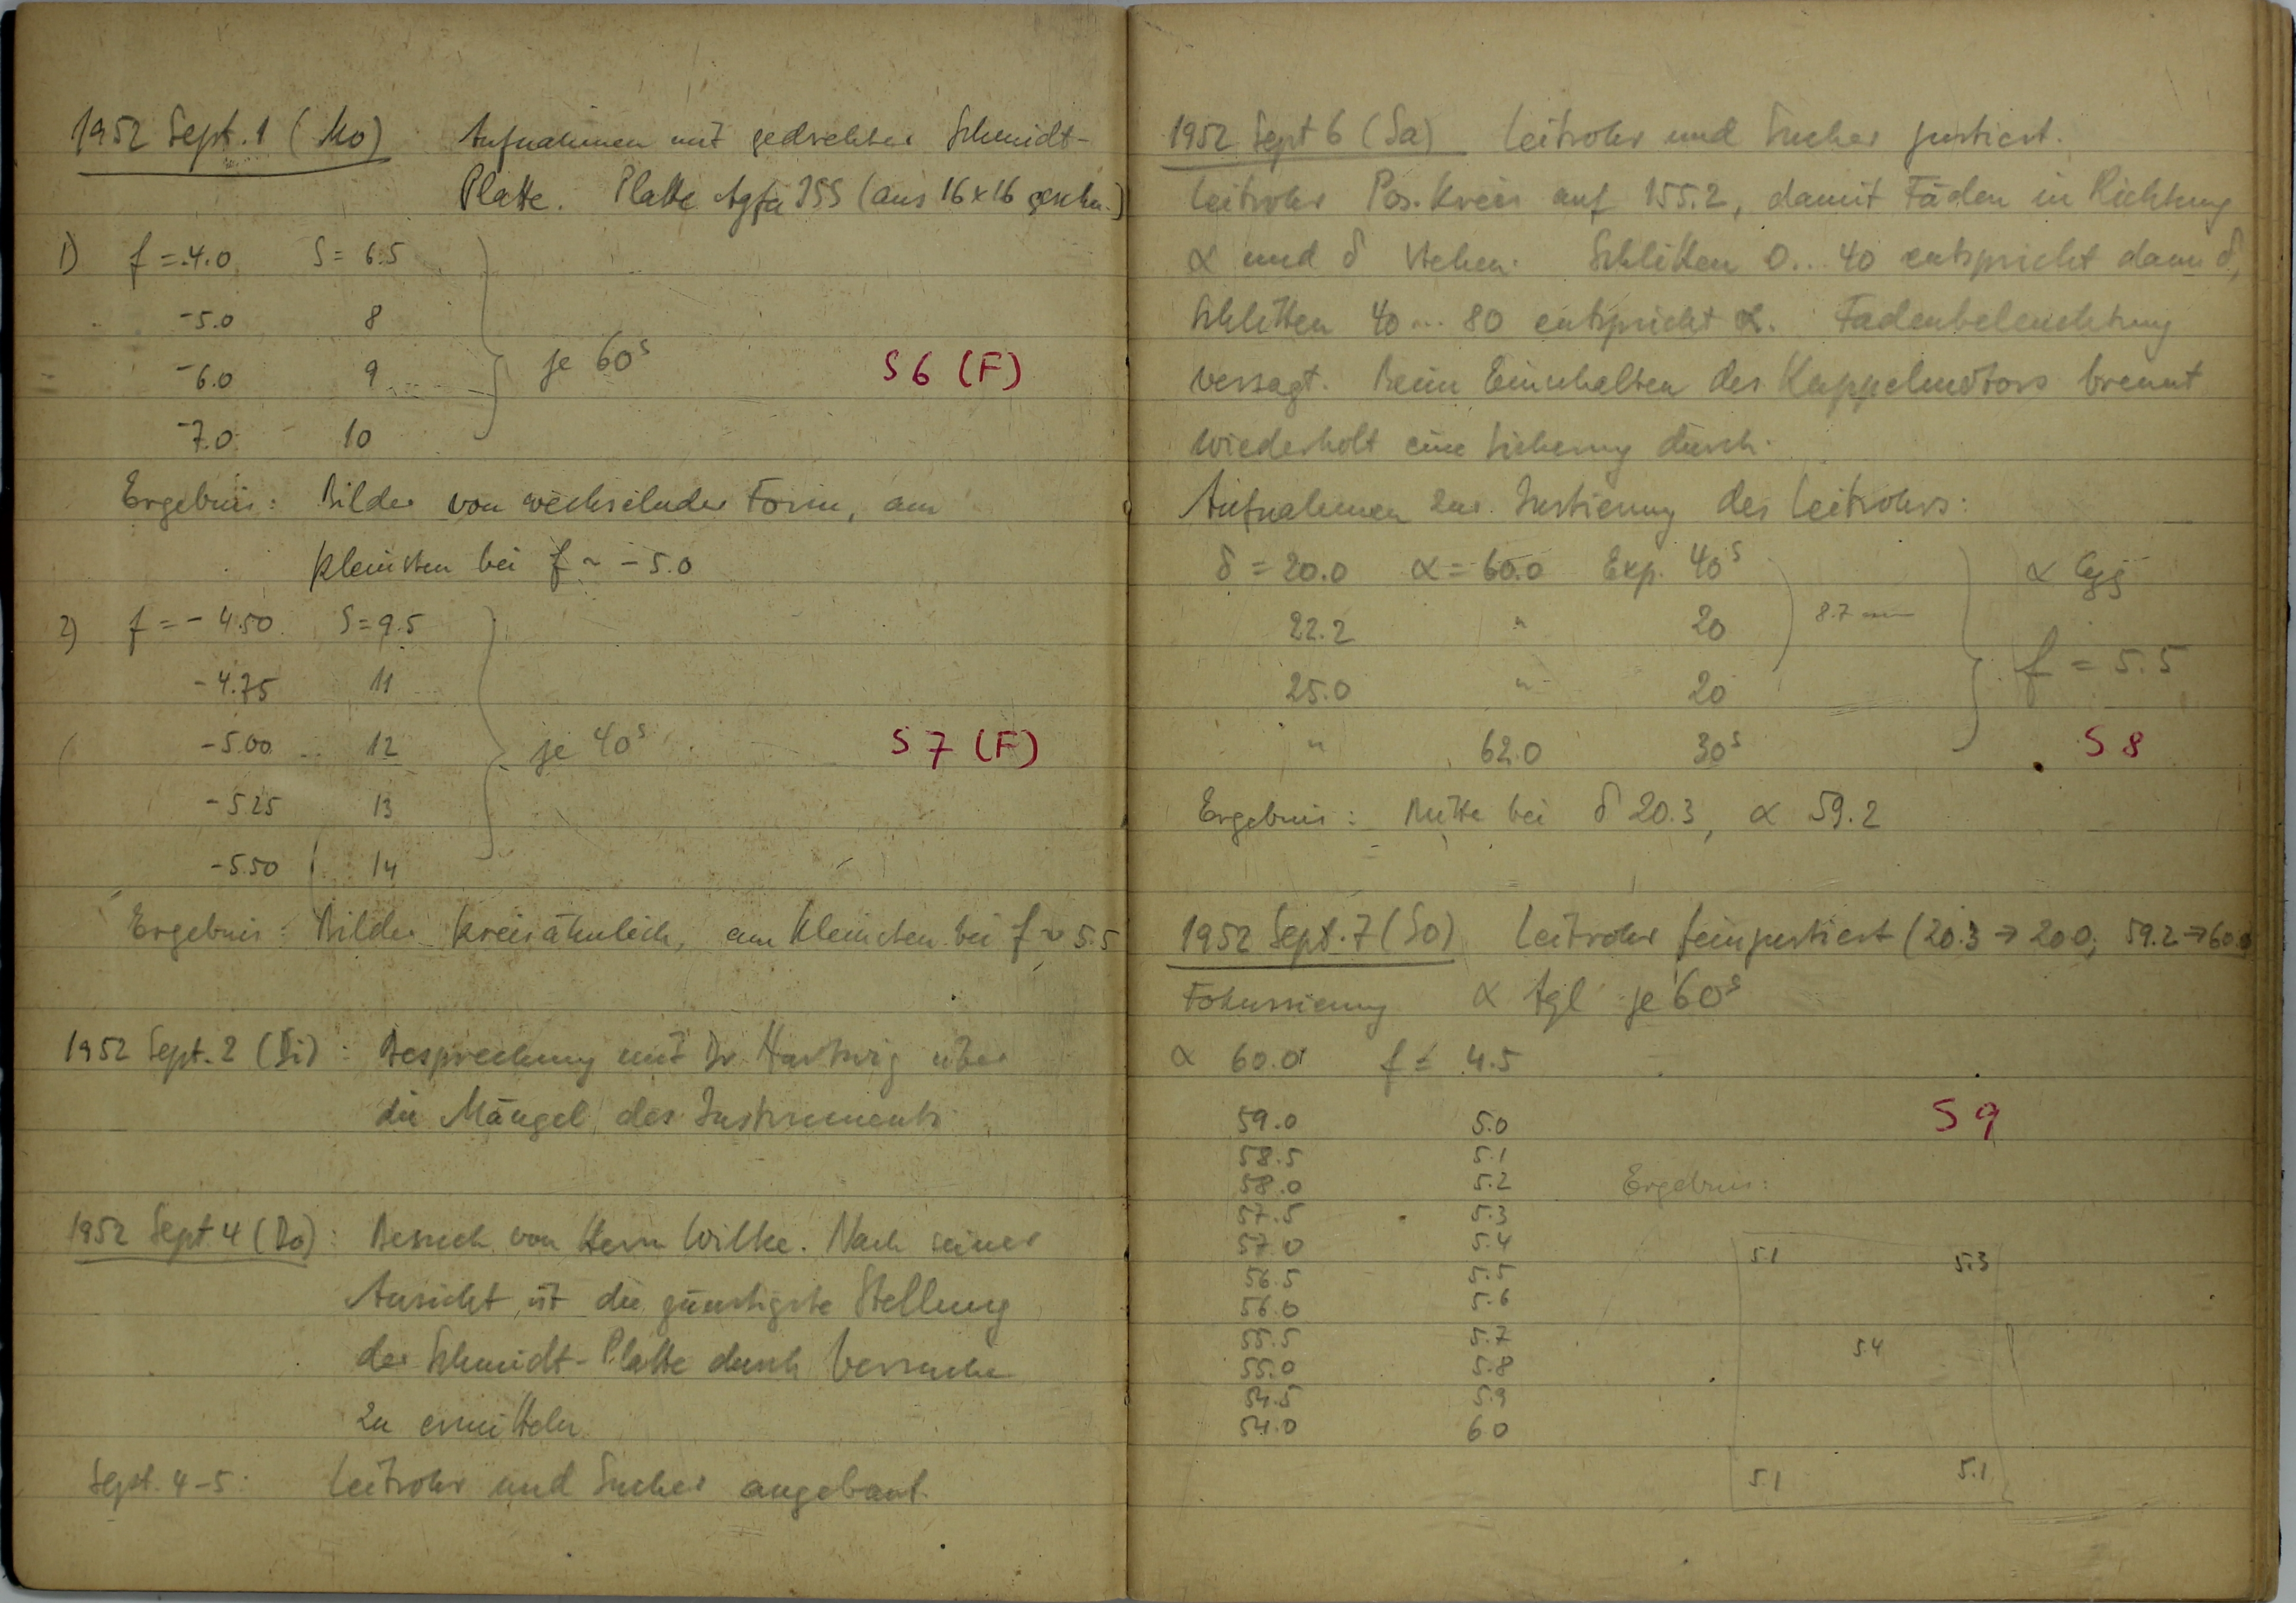 1952 Sept. 1 (Mo) Aufnahmen mit gedrehter Schmidt-
Platte. Platte Agfa ISS (aus 16×16 geschn.)
1) f = -4.0 S = 6.5
-5.0 8
-6.0 9 je 60ˢ S 6 (F)
-7.0 10
Ergebnis: Bilder von wechselnder Form, am
kleinsten bei f ~ -5.0
2) f = -4.50 S = 9.5
-4.75 11
-5.00 12 je 40ˢ S 7 (F)
-5.25 13
-5.50 14
Ergebnis: Bilder kreisähnlich, am kleinsten bei f ~ 5.5
1952 Sept. 2 (Di): Besprechung mit Dr. Hartwig über
die Mängel des Instruments
1952 Sept 4 (Do): Besuch von Herrn Wilke. Nach seiner
Ansicht ist die günstigste Stellung
der Schmidt-Platte durch Versuche
zu ermitteln
Sept. 4-5: Leitrohr und Sucher angebaut.
1952 Sept 6 (Sa) Leitrohr und Sucher justiert.
Leitrohr Pos. Kreis auf 155.2, damit Fäden in Richtung
α und δ stehen. Schlitten 0...40 entspricht dann δ,
Schlitten 40...80 entspricht α. Fadenbeleuchtung
versagt. Beim Einschalten des Kuppelmotors brennt
wiederholt eine Sicherung durch.
Aufnahmen zur Justierung des Leitrohrs:
δ = 20.0 α = 60.0 Exp. 40ˢ α Cyg
22.2 " 20 8.7 mm
25.0 " 20 f = 5.5
" 62.0 30ˢ S 8
Ergebnis: Mitte bei δ 20.3, α 59.2
1952 Sept. 7 (So) Leitrohr feinjustiert (20.3 → 20.0; 59.2 → 60.0
Fokussierung α Aql je 60ˢ
α 60.0 f = 4.5
59.0 5.0 S 9
58.5 5.1
58.0 5.2 Ergebnis:
57.5 5.3
57.0 5.4
5.1 5.3
56.5 5.5
56.0 5.6
55.5 5.7
5.4
55.0 5.8
54.5 5.9
54.0 6.0
5.1 5.1